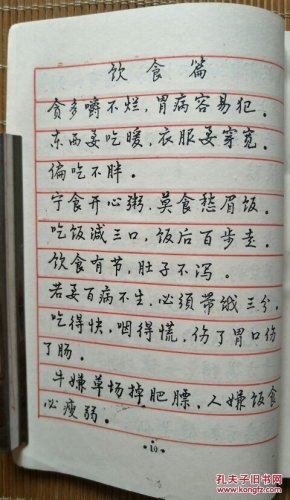 饮食篇
贪多嚼不烂，胃病容易犯。
东西要吃暖，衣服要穿宽。
偏吃不胖。
宁食开心粥，莫食愁眉饭。
吃饭减三口，饭后百步走。
饮食有节，肚子不泻。
若要百病不生，必须带饿三分。
吃得快，咽得慌，伤了胃口伤
了肠。
牛嫌草场掉肥膘，人嫌饭食
必瘦弱。
·10·
孔夫子旧书网